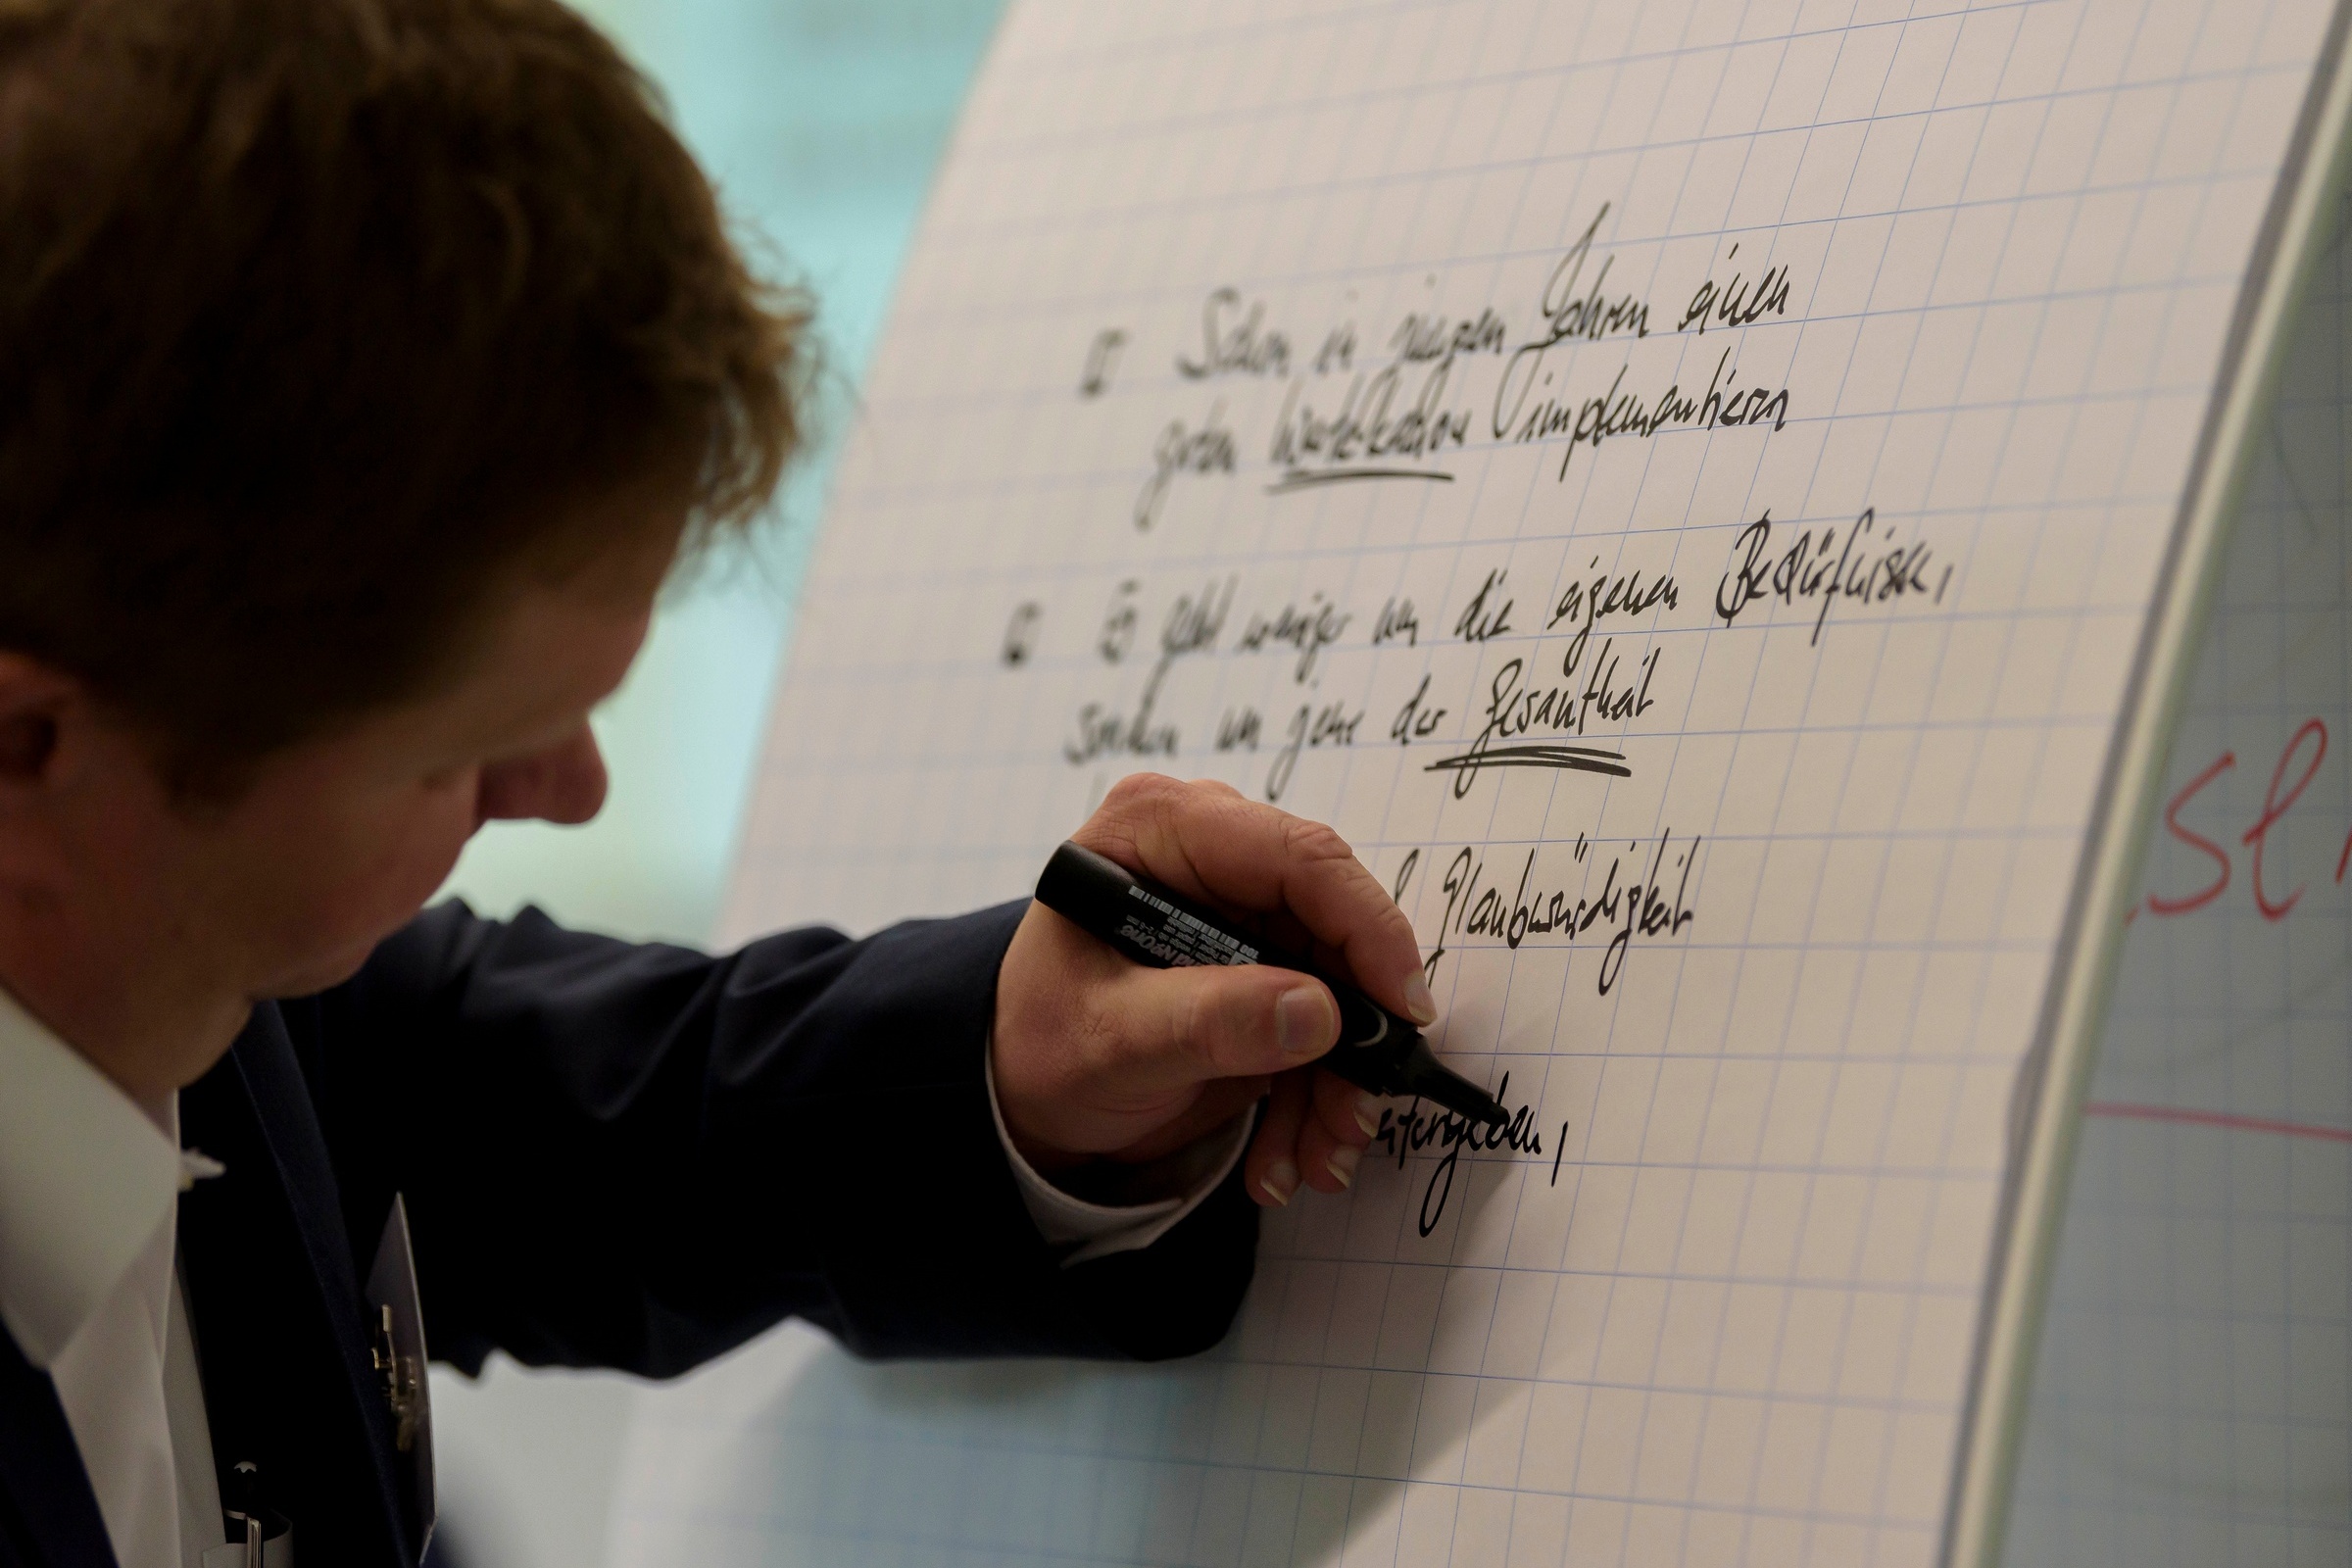 Schon in jungen Jahren einen
guten Wertekanon implementieren
Es geht weniger um die eigenen Bedürfnisse,
sondern um jene der Gesamtheit
Glaubwürdigkeit